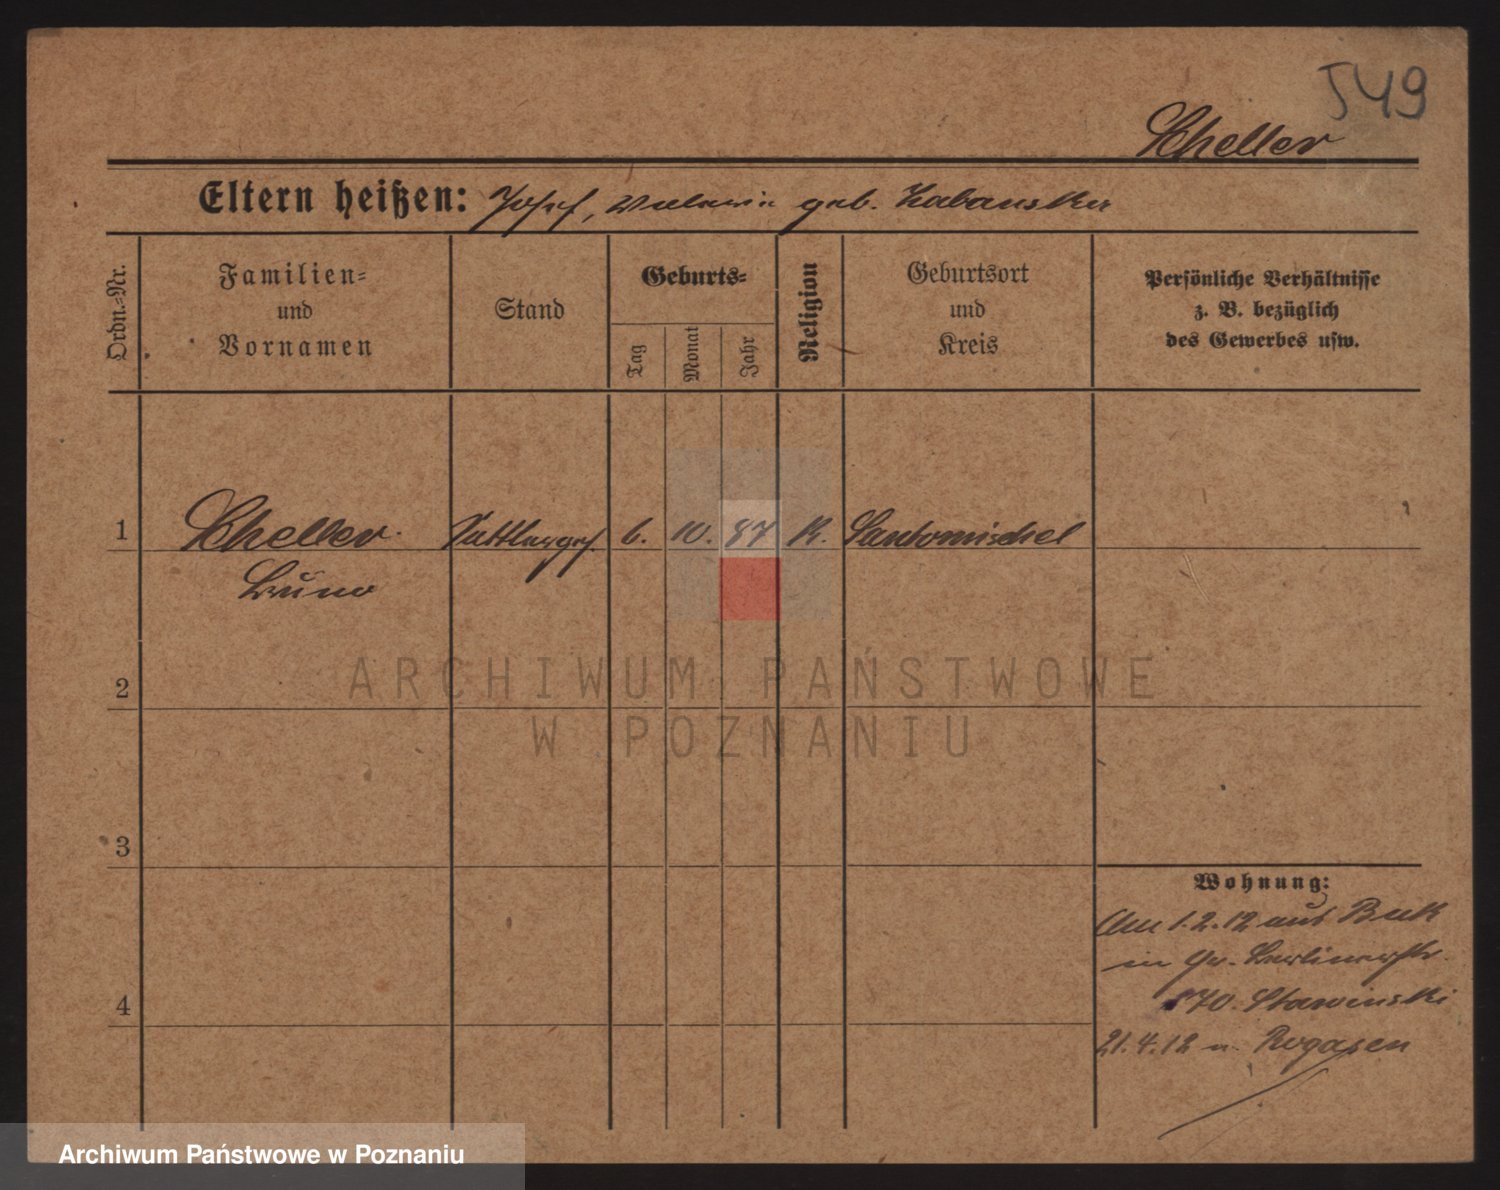 549
Scheller
Eltern heißen: Josef, Valeria geb. Kabanska
Ordn.-Nr.
Familien-
und
Vornamen
Stand
Geburts-
Tag
Monat
Jahr
Religion
Geburtsort
und
Kreis
Persönliche Verhältnisse
z. B. bezüglich
des Gewerbes usw.
1
Scheller
Sattlerges.
6. 10. 87
K.
Santomischel
Bruno
2
ARCHIWUM PAŃSTWOWE
W POZNANIU
3
4
Wohnung:
Am 1.2.12 aus Buk
in Gr. Berlinerstr.
870. Stawinski
21.4.12 n. Rogasen
Archiwum Państwowe w Poznaniu